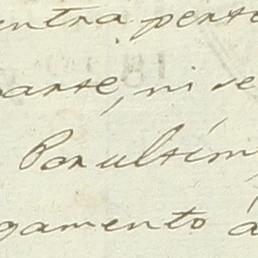 entra perte
parte, ni se
Por ultim
gamento á